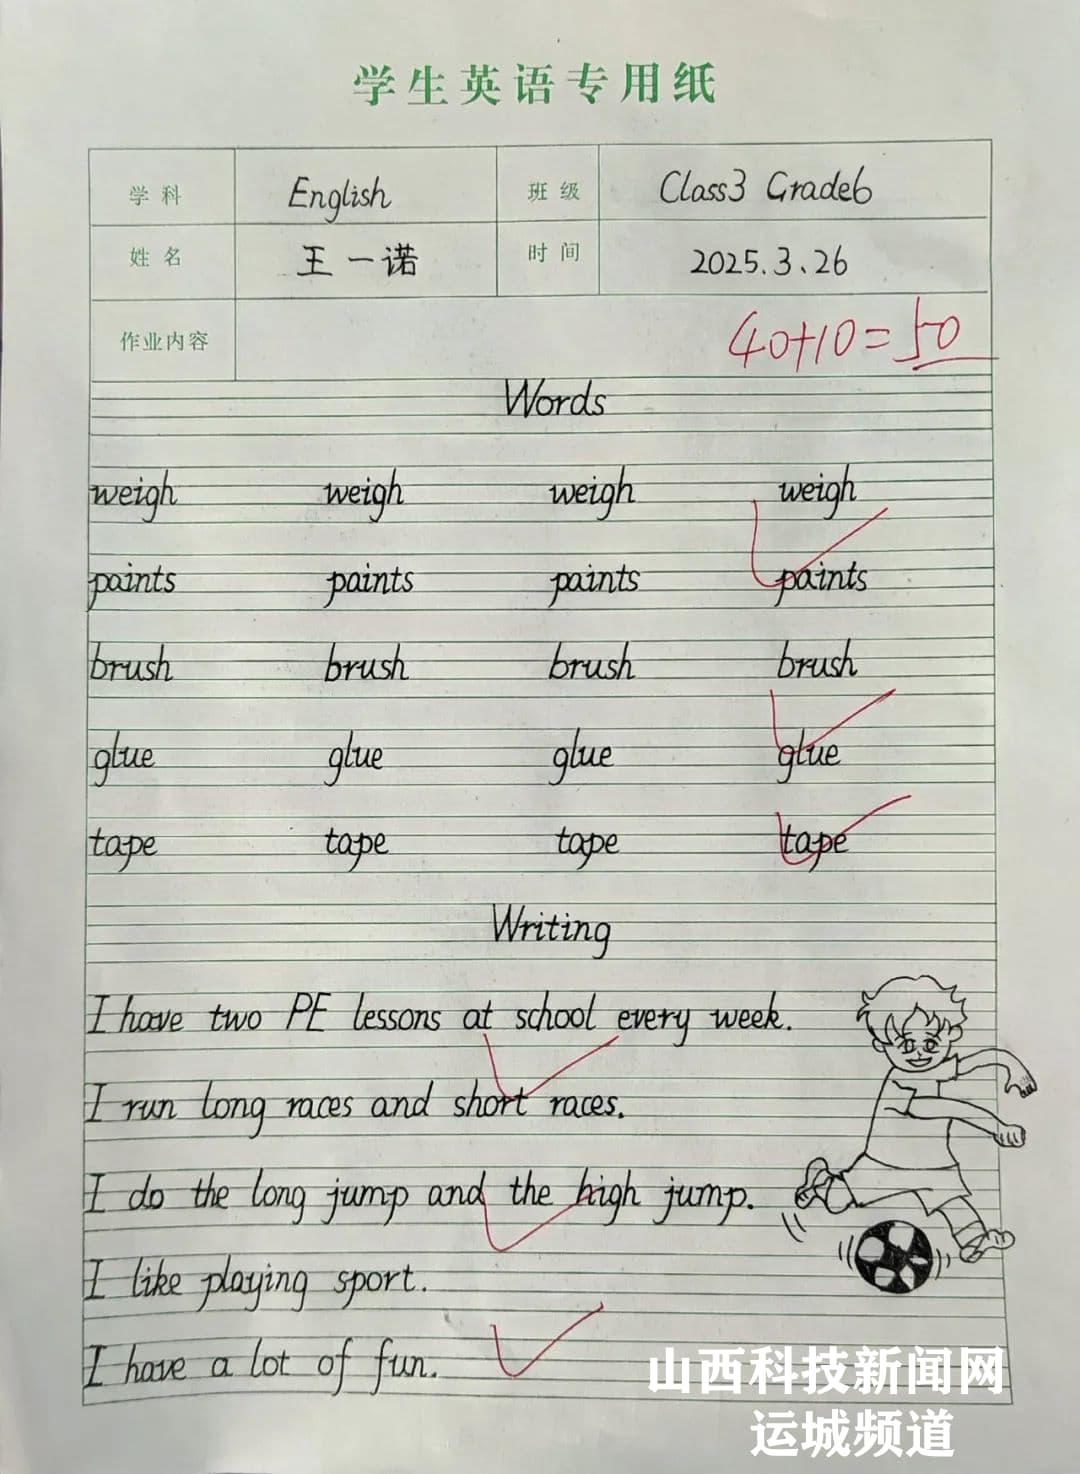 学生英语专用纸
学科 English 班级 Class3 Grade6
姓名 王一诺 时间 2025.3.26
作业内容 40+10=50
Words
weigh weigh weigh weigh
paints paints paints paints
brush brush brush brush
glue glue glue glue
tape tape tape tape
Writing
I have two PE lessons at school every week.
I run long races and short races.
I do the long jump and the high jump.
I like playing sport.
I have a lot of fun.
山西科技新闻网
运城频道